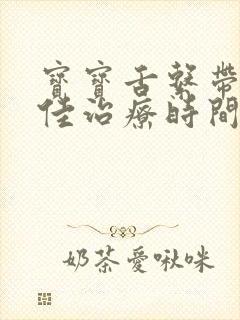 寶寶舌繫帶
佳治療時間
奶茶愛啾咪